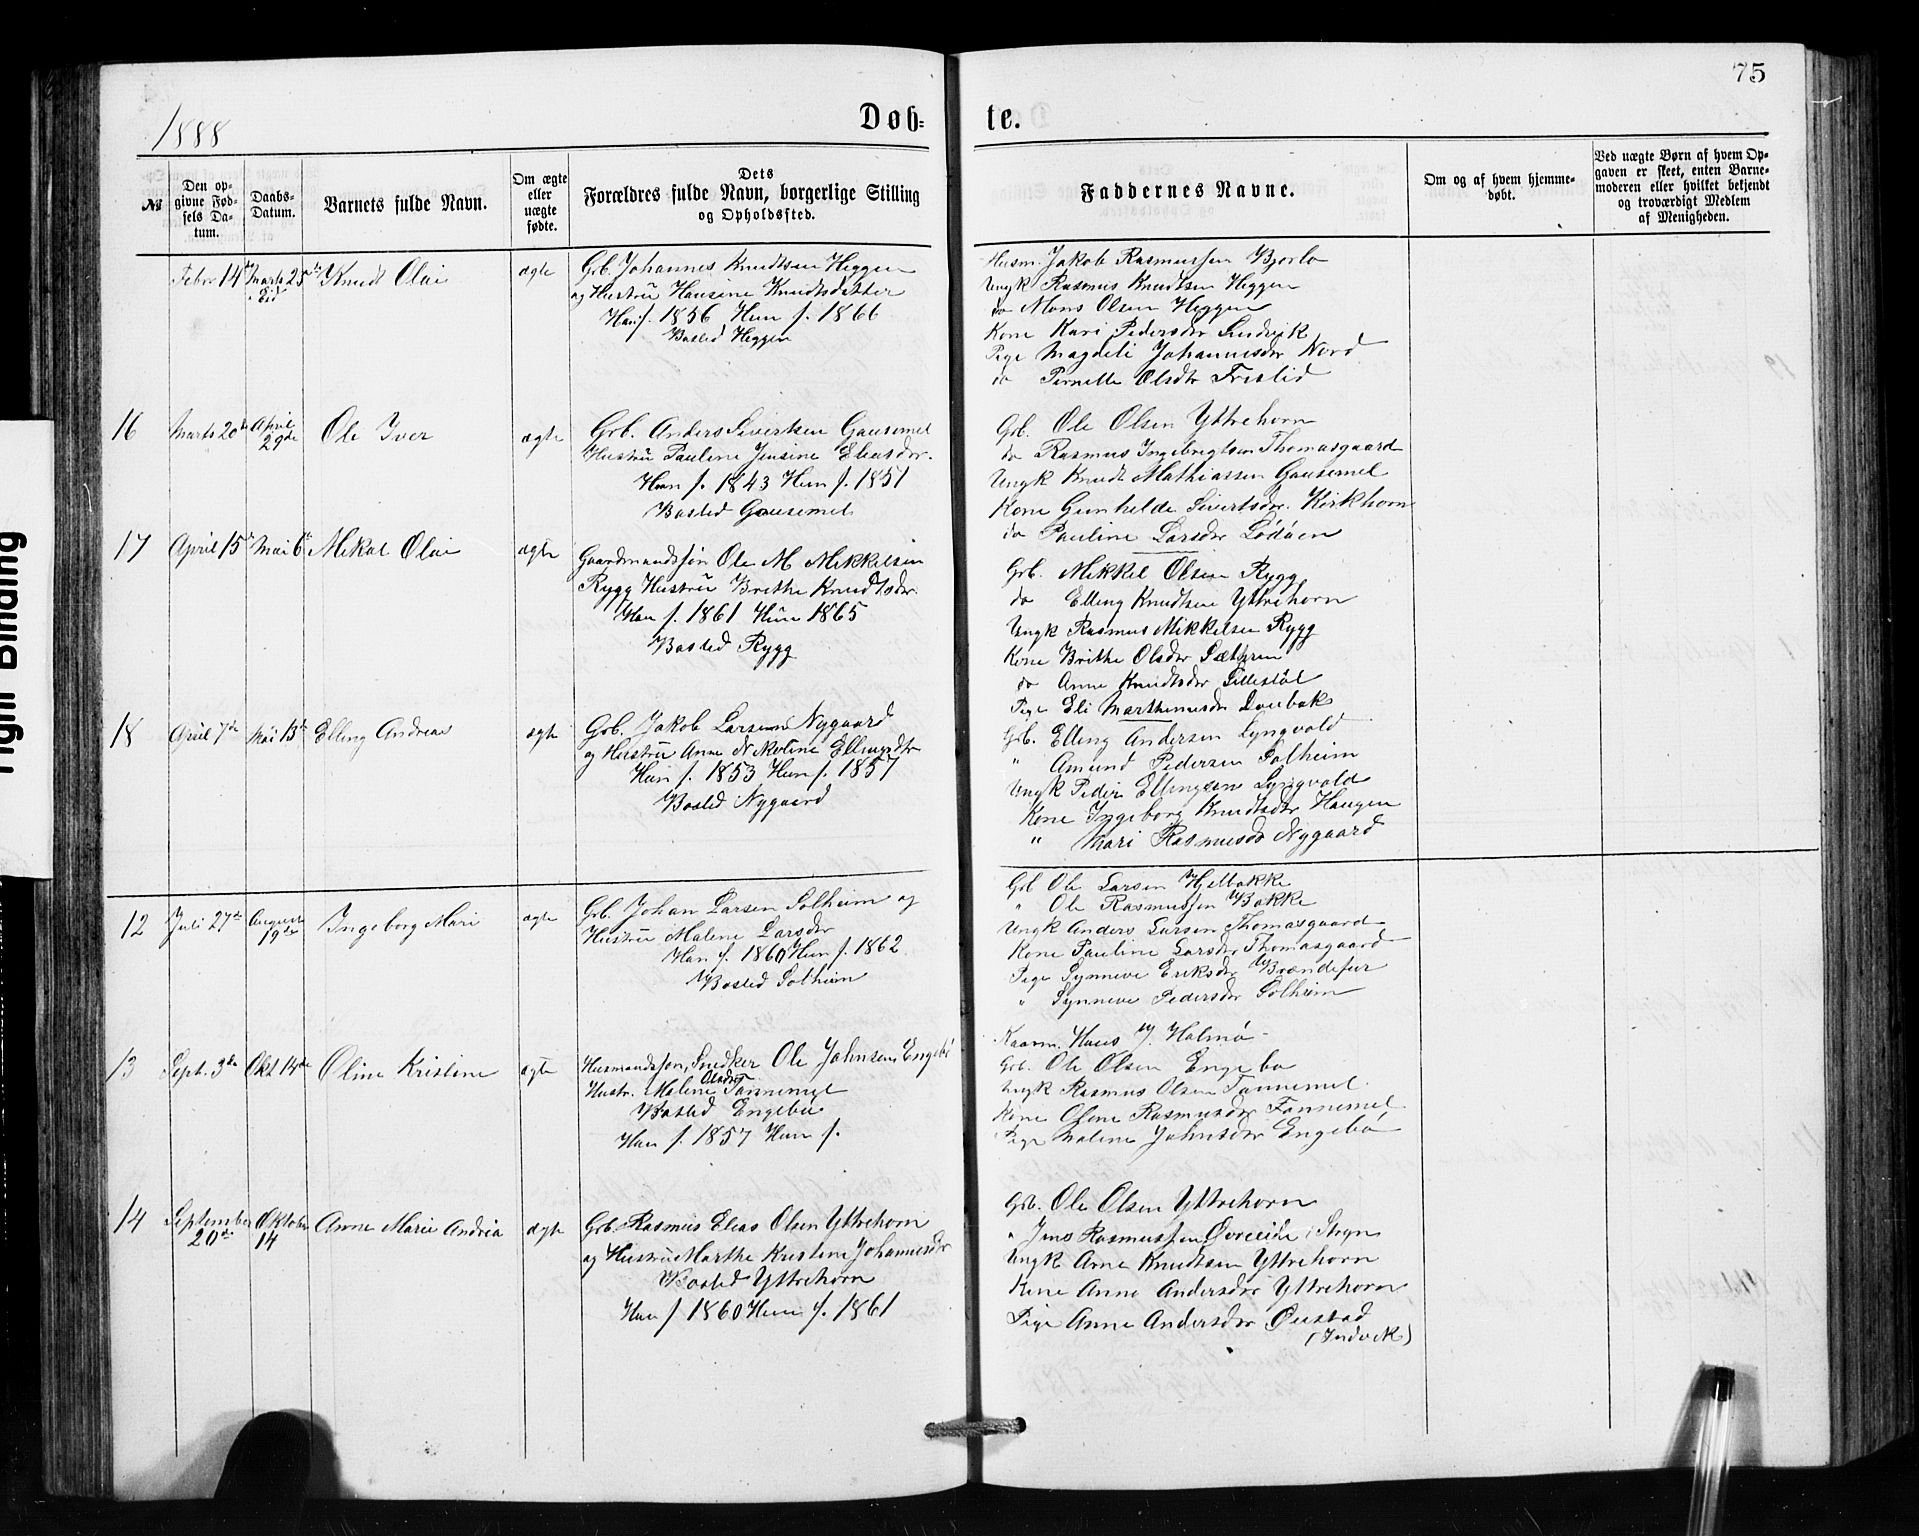 75
1888
Døb-
te.
№
Den opgivne Fødsels Datum.
Daabs-Datum.
Barnets fulde Navn.
Om ægte eller uægte fødte.
Dets
Forældres fulde Navn, borgerlige Stilling
og Opholdsfted.
Faddernes Navne.
Om og af hvem hjemme-
døbt.
Ved uægte Børn af hvem Op-
gaven er skeet, enten Barne-
moderen eller hvilket bekjendt
og troværdigt Medlem
af Menigheden.
Febr 14de
Marts 25de
i Eid
Knudt Olai
ægte
Grb. Johannes Knudtsen Heggen
og Hustru Hansine Knudtsdatter
Han f. 1856 Hun f. 1866
Bosted Heggen
Husm. Jakob Rasmussen Bjorlo
Ungk Rasmus Knudtsen Heggen
do Mons Olsen Heggen
Kone Kari Pedersdr Sindvik
Pige Magdeli Johannesdr Nord
do Pernille Olsdtr Frislid
16
Marts 20de
April
29de
Ole Iver
ægte
Grb. Anders Sivertsen Gausemel
Hustru Pauline Jensine Eliasdr.
Han f. 1843 Hun f. 1851
Bosted Gausemel
Grb. Ole Olsen Yttrehorn
do Rasmus Ingebregtsen Thomasgaard
Ungk Knudt Mathiassen Gausemel
Kone Gunhilde Sivertsdr. Kirkhorn
do Pauline Larsdr Lødøen
17
April 15de
Mai 6te
Mikal Olai
ægte
Gaardmandssøn Ole M Mikkelsen
Rygg Hustru Brithe Knudtsdr.
Han f. 1861 Hun 1865
Bosted Rygg
Grb. Mikkel Olsen Rygg
do Elling Knudtsen Yttrehorn
Ungk Rasmus Mikkelsen Rygg
Kone Brithe Olsdr Sætren
do Anne Knudtsdr Sellestøl
Pige Eli Marthinusdr Loubak
18
April 7de
Mai 13de
Elling Andreas
ægte
Grb. Jakob Larsen Nygaard
og Hustru Anne Nikoline Ellingsdtr
Han f. 1853 Hun f. 1857
Bosted Nygaard
Grb. Elling Andersen Lyngvold
" Amund Pedersen Solheim
Ungk Peder Ellingsen Lyngvold
Kone Ingeborg Knudtsdr Haugen
" Mari Rasmusdr Nygaard
12
Juli 27de
August
19de
Ingeborg Mari
ægte
Grb. Johan Larsen Solheim og
Hustru Malene Larsdr
Han f. 1860 Hun f. 1862
Bosted Solheim
Grb Ole Larsen Hjelbakke
" Ole Rasmussen Bakke
Ungk Anders Larsen Thomasgaard
Kone Pauline Larsdr Thomasgaard
Pige Synneve Eriksdr Brændefur
" Synneve Pedersdr Solheim
13
Sept. 3die
Okt 14de
Oline Kristine
ægte
Husmandssøn, Snedker Ole Johnsen Engebø
Olsdtr
Hustr. Malene Tannemel
Bosted Engebø
Han f. 1857 Hun f.
Kaarm. Hans J. Holmø
Grb. Ole Olsen Engebø
Ungk Rasmus Olsen Fannemel
Kone Oline Rasmusdr Fannemel
Pige Malene Johnsdr Engebø
14
September
20de
Oktober
14
Anne Marie Andrea
ægte
Grb. Rasmus Elias Olsen Yttrehorn
og Hustru Marthe Kristine Johannesdtr
Bosted Yttrehorn
Han f 1860 Hun f. 1861
Grb. Ole Olsen Yttrehorn
" Jens Rasmussen Øvreeide, Stryn
Ungk Arne Knudtsen Yttrehorn
Kone Anne Andersdr Yttrehorn
Pige Anne Andersdr Ørstad
(Indvik)
Tight Binding